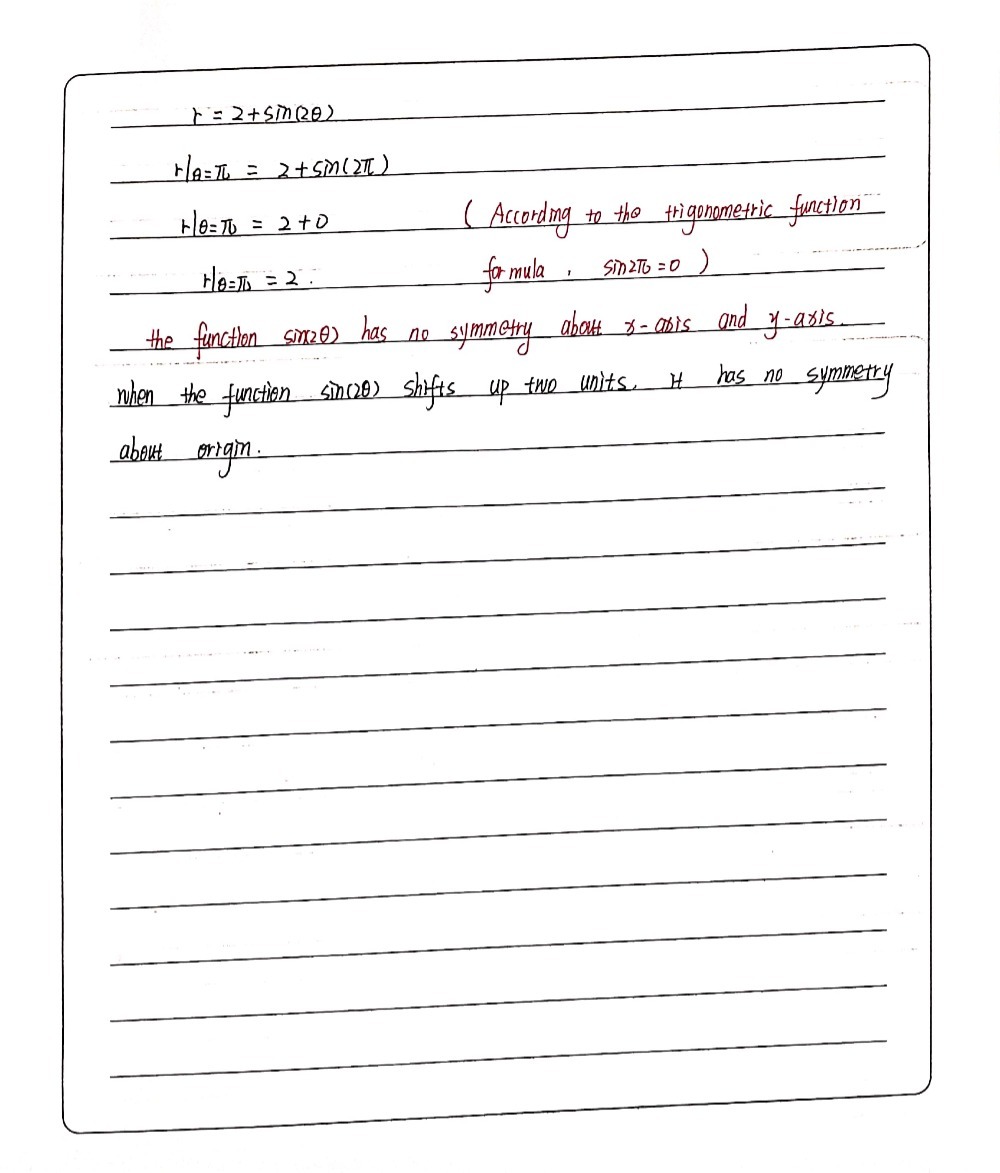 r = 2+sin(2θ)
r|θ=π = 2+sin(2π)
r|θ=π = 2+0 ( According to the trigonometric function
r|θ=π = 2. formula , sin2π=0 )
the function sin(2θ) has no symmetry about x-axis and y-axis.
when the function sin(2θ) shifts up two units. it has no symmetry
about origin.